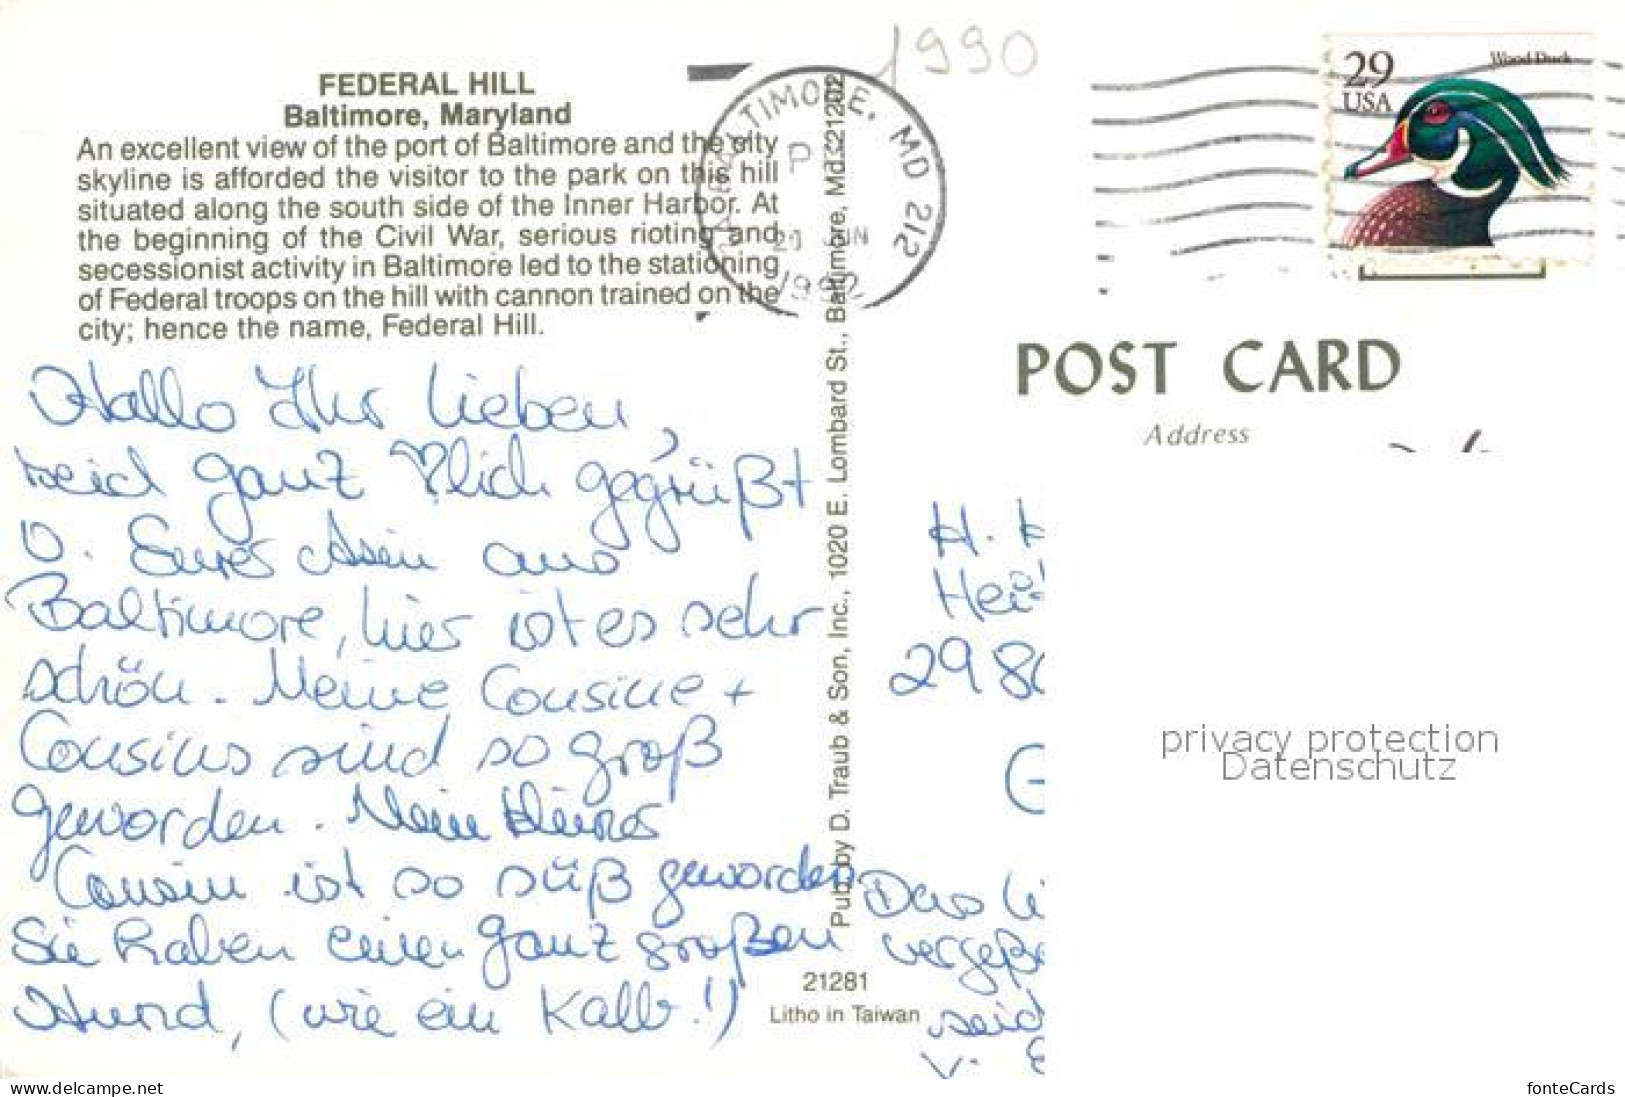 1990
FEDERAL HILL
Baltimore, Maryland
An excellent view of the port of Baltimore and the city
skyline is afforded the visitor to the park on this hill
situated along the south side of the Inner Harbor. At
the beginning of the Civil War, serious rioting and
secessionist activity in Baltimore led to the stationing
of Federal troops on the hill with cannon trained on the
city; hence the name, Federal Hill.
BALTIMORE, MD 212
P
JUN
1992
29
USA
Wood Duck
POST CARD
Address
Hallo Ihr Lieben,
seid ganz ♡lich gegrüßt
v. Eurer aus
Baltimore, hier ist es sehr
schön. Meine Cousine +
Cousins sind so groß
geworden. Mein kleiner
Cousin ist so süß geworden
Sie haben einen ganz großen
Hund, (wie ein Kalb!)
Pub. by D. Traub & Son, Inc., 1020 E. Lombard St., Baltimore, Md. 21202
21281
Litho in Taiwan
H.
Hei
298
G
Das
vergeße
seid
v.
privacy protection
Datenschutz
fonteCards